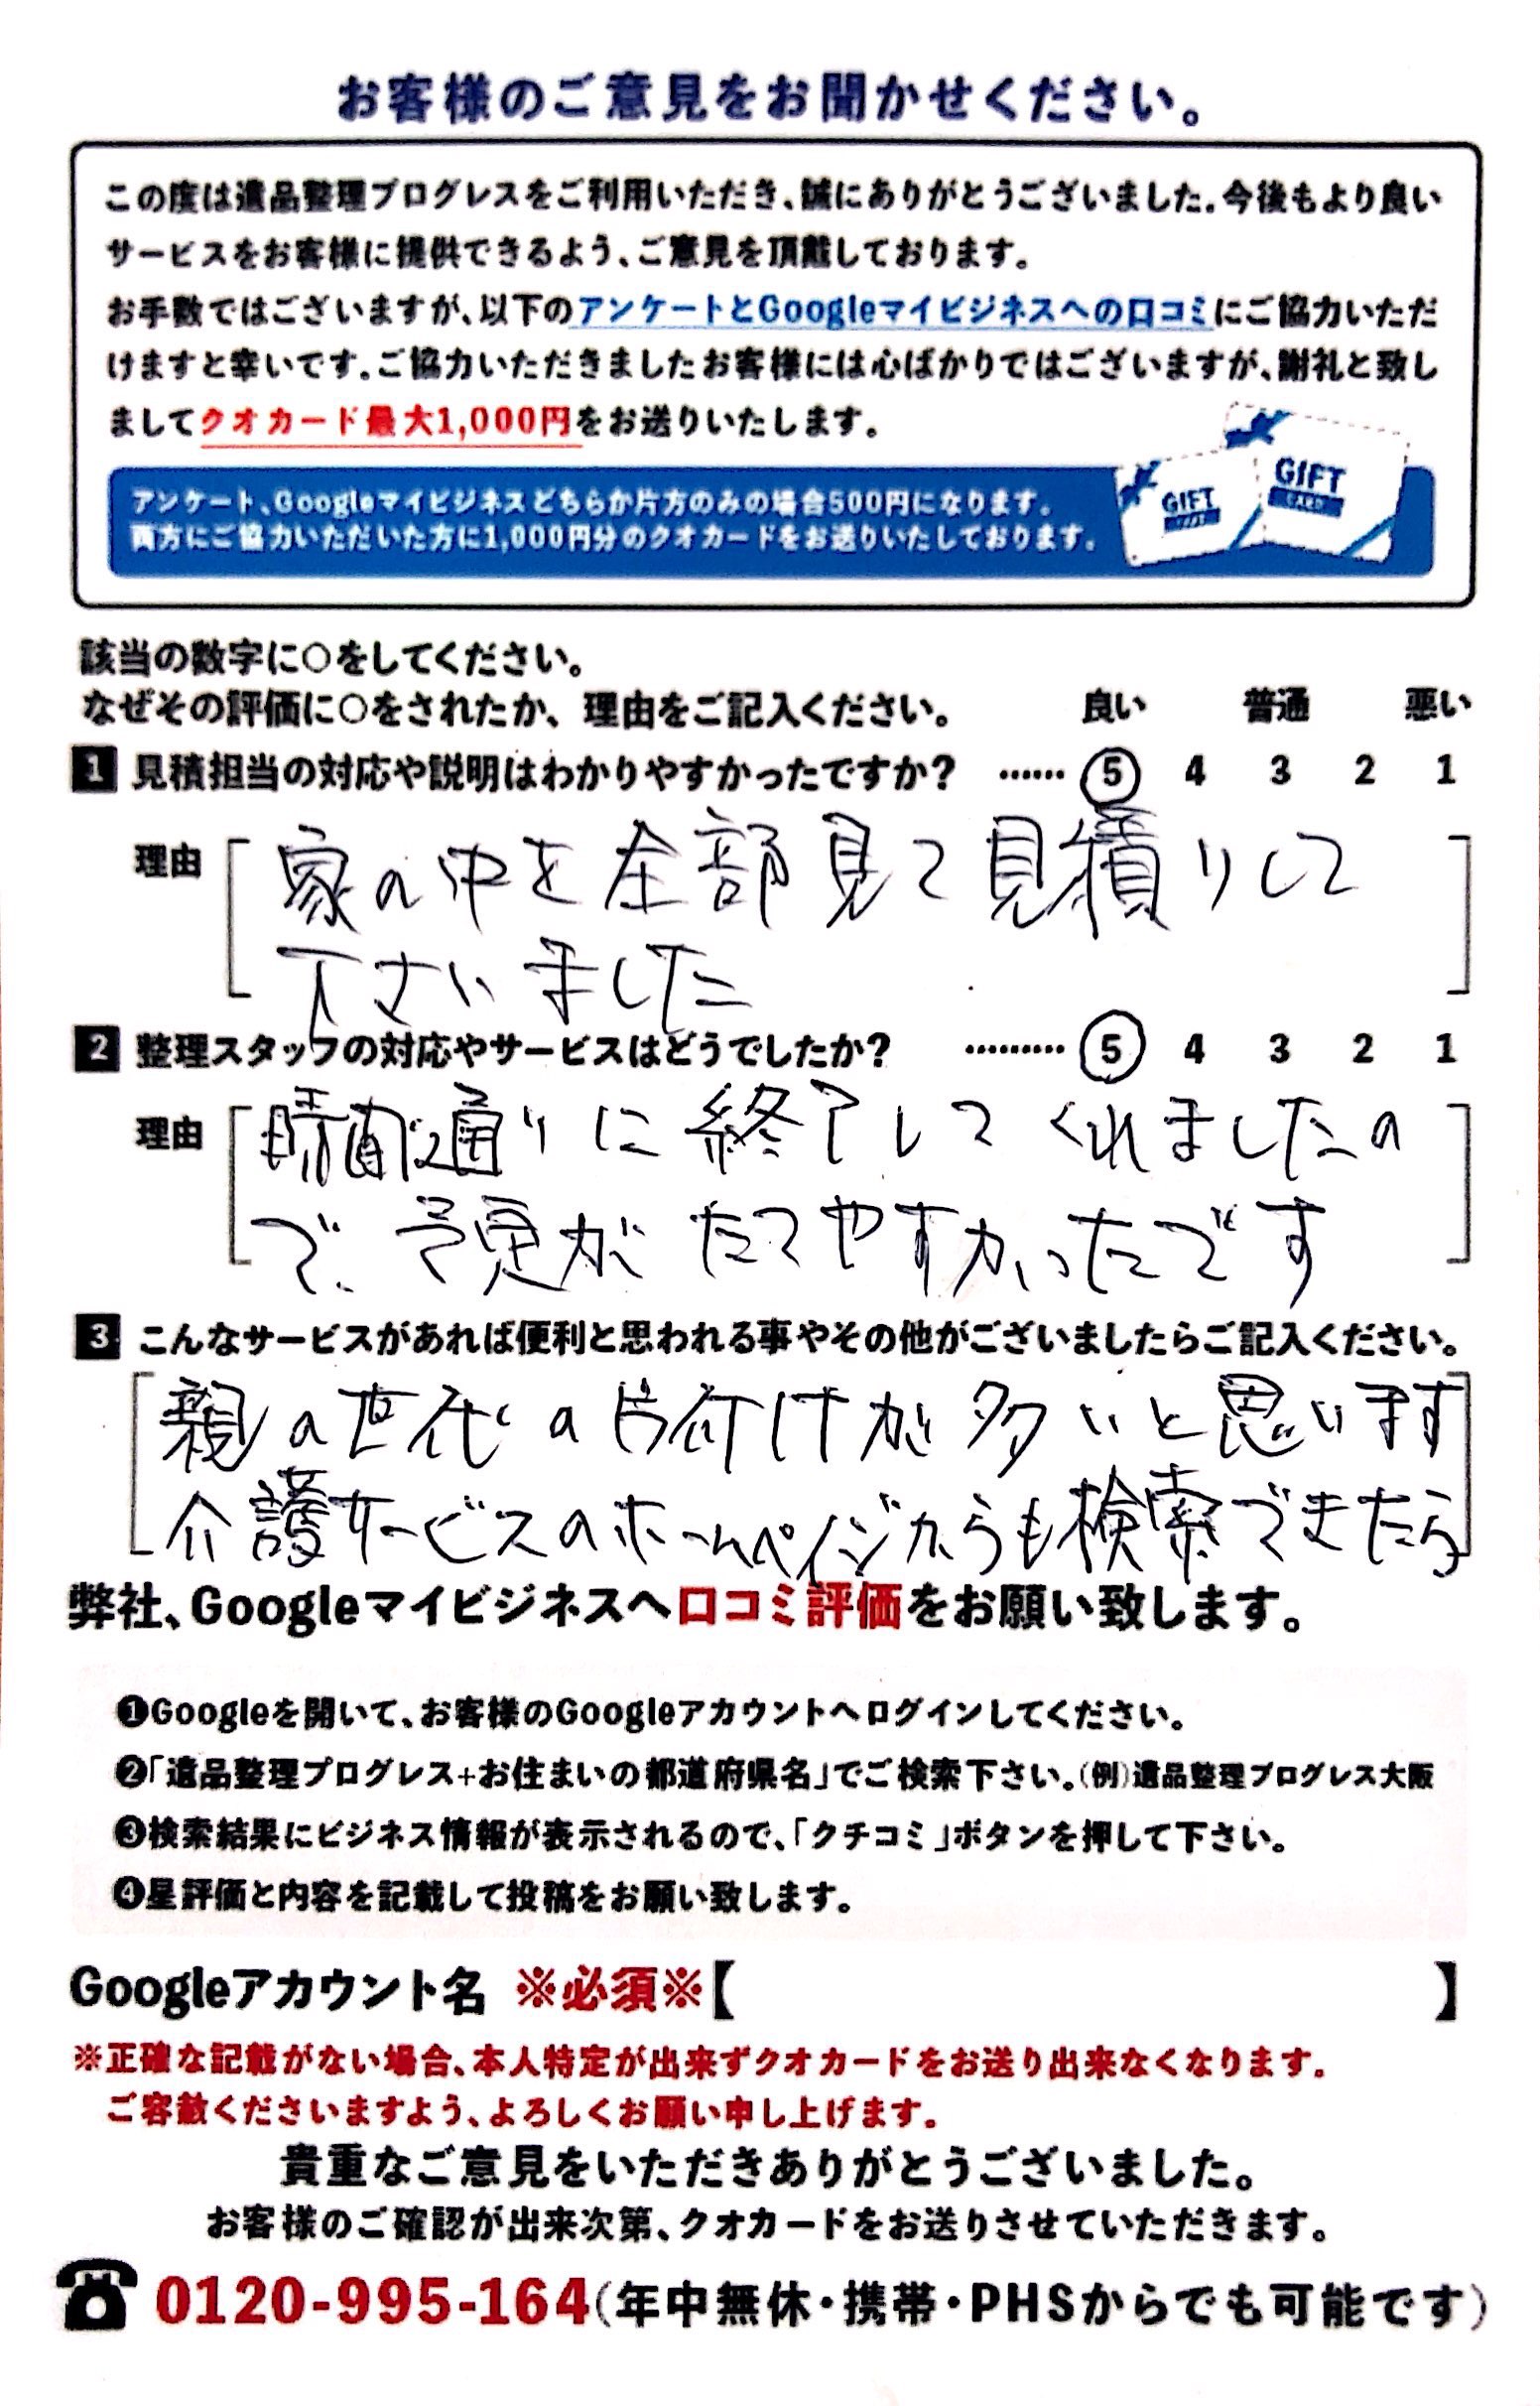 お客様のご意見をお聞かせください。
この度は遺品整理プログレスをご利用いただき、誠にありがとうございました。今後もより良い
サービスをお客様に提供できるよう、ご意見を頂戴しております。
お手数ではございますが、以下のアンケートとGoogleマイビジネスへの口コミにご協力いただ
けますと幸いです。ご協力いただきましたお客様には心ばかりではございますが、謝礼と致し
ましてクオカード最大1,000円をお送りいたします。
アンケート、Googleマイビジネスどちらか片方のみの場合500円になります。
両方にご協力いただいた方に1,000円分のクオカードをお送りいたしております。
GIFT
GIFT CARD
該当の数字に○をしてください。
なぜその評価に○をされたか、理由をご記入ください。 良い 普通 悪い
1 見積担当の対応や説明はわかりやすかったですか? …… 5 4 3 2 1
理由 家の中を全部見て見積りして
下さいました
2 整理スタッフの対応やサービスはどうでしたか? ……… 5 4 3 2 1
理由 時間通りに終了してくれましたの
で、予定がたてやすかったです
3 こんなサービスがあれば便利と思われる事やその他がございましたらご記入ください。
親の世代の片付けが多いと思います
介護サービスのホームページからも検索できたら
弊社、Googleマイビジネスへ口コミ評価をお願い致します。
❶Googleを開いて、お客様のGoogleアカウントへログインしてください。
❷「遺品整理プログレス+お住まいの都道府県名」でご検索下さい。(例)遺品整理プログレス大阪
❸検索結果にビジネス情報が表示されるので、「クチコミ」ボタンを押して下さい。
❹星評価と内容を記載して投稿をお願い致します。
Googleアカウント名 ※必須※【 】
※正確な記載がない場合、本人特定が出来ずクオカードをお送り出来なくなります。
ご容赦くださいますよう、よろしくお願い申し上げます。
貴重なご意見をいただきありがとうございました。
お客様のご確認が出来次第、クオカードをお送りさせていただきます。
0120-995-164(年中無休・携帯・PHSからでも可能です)